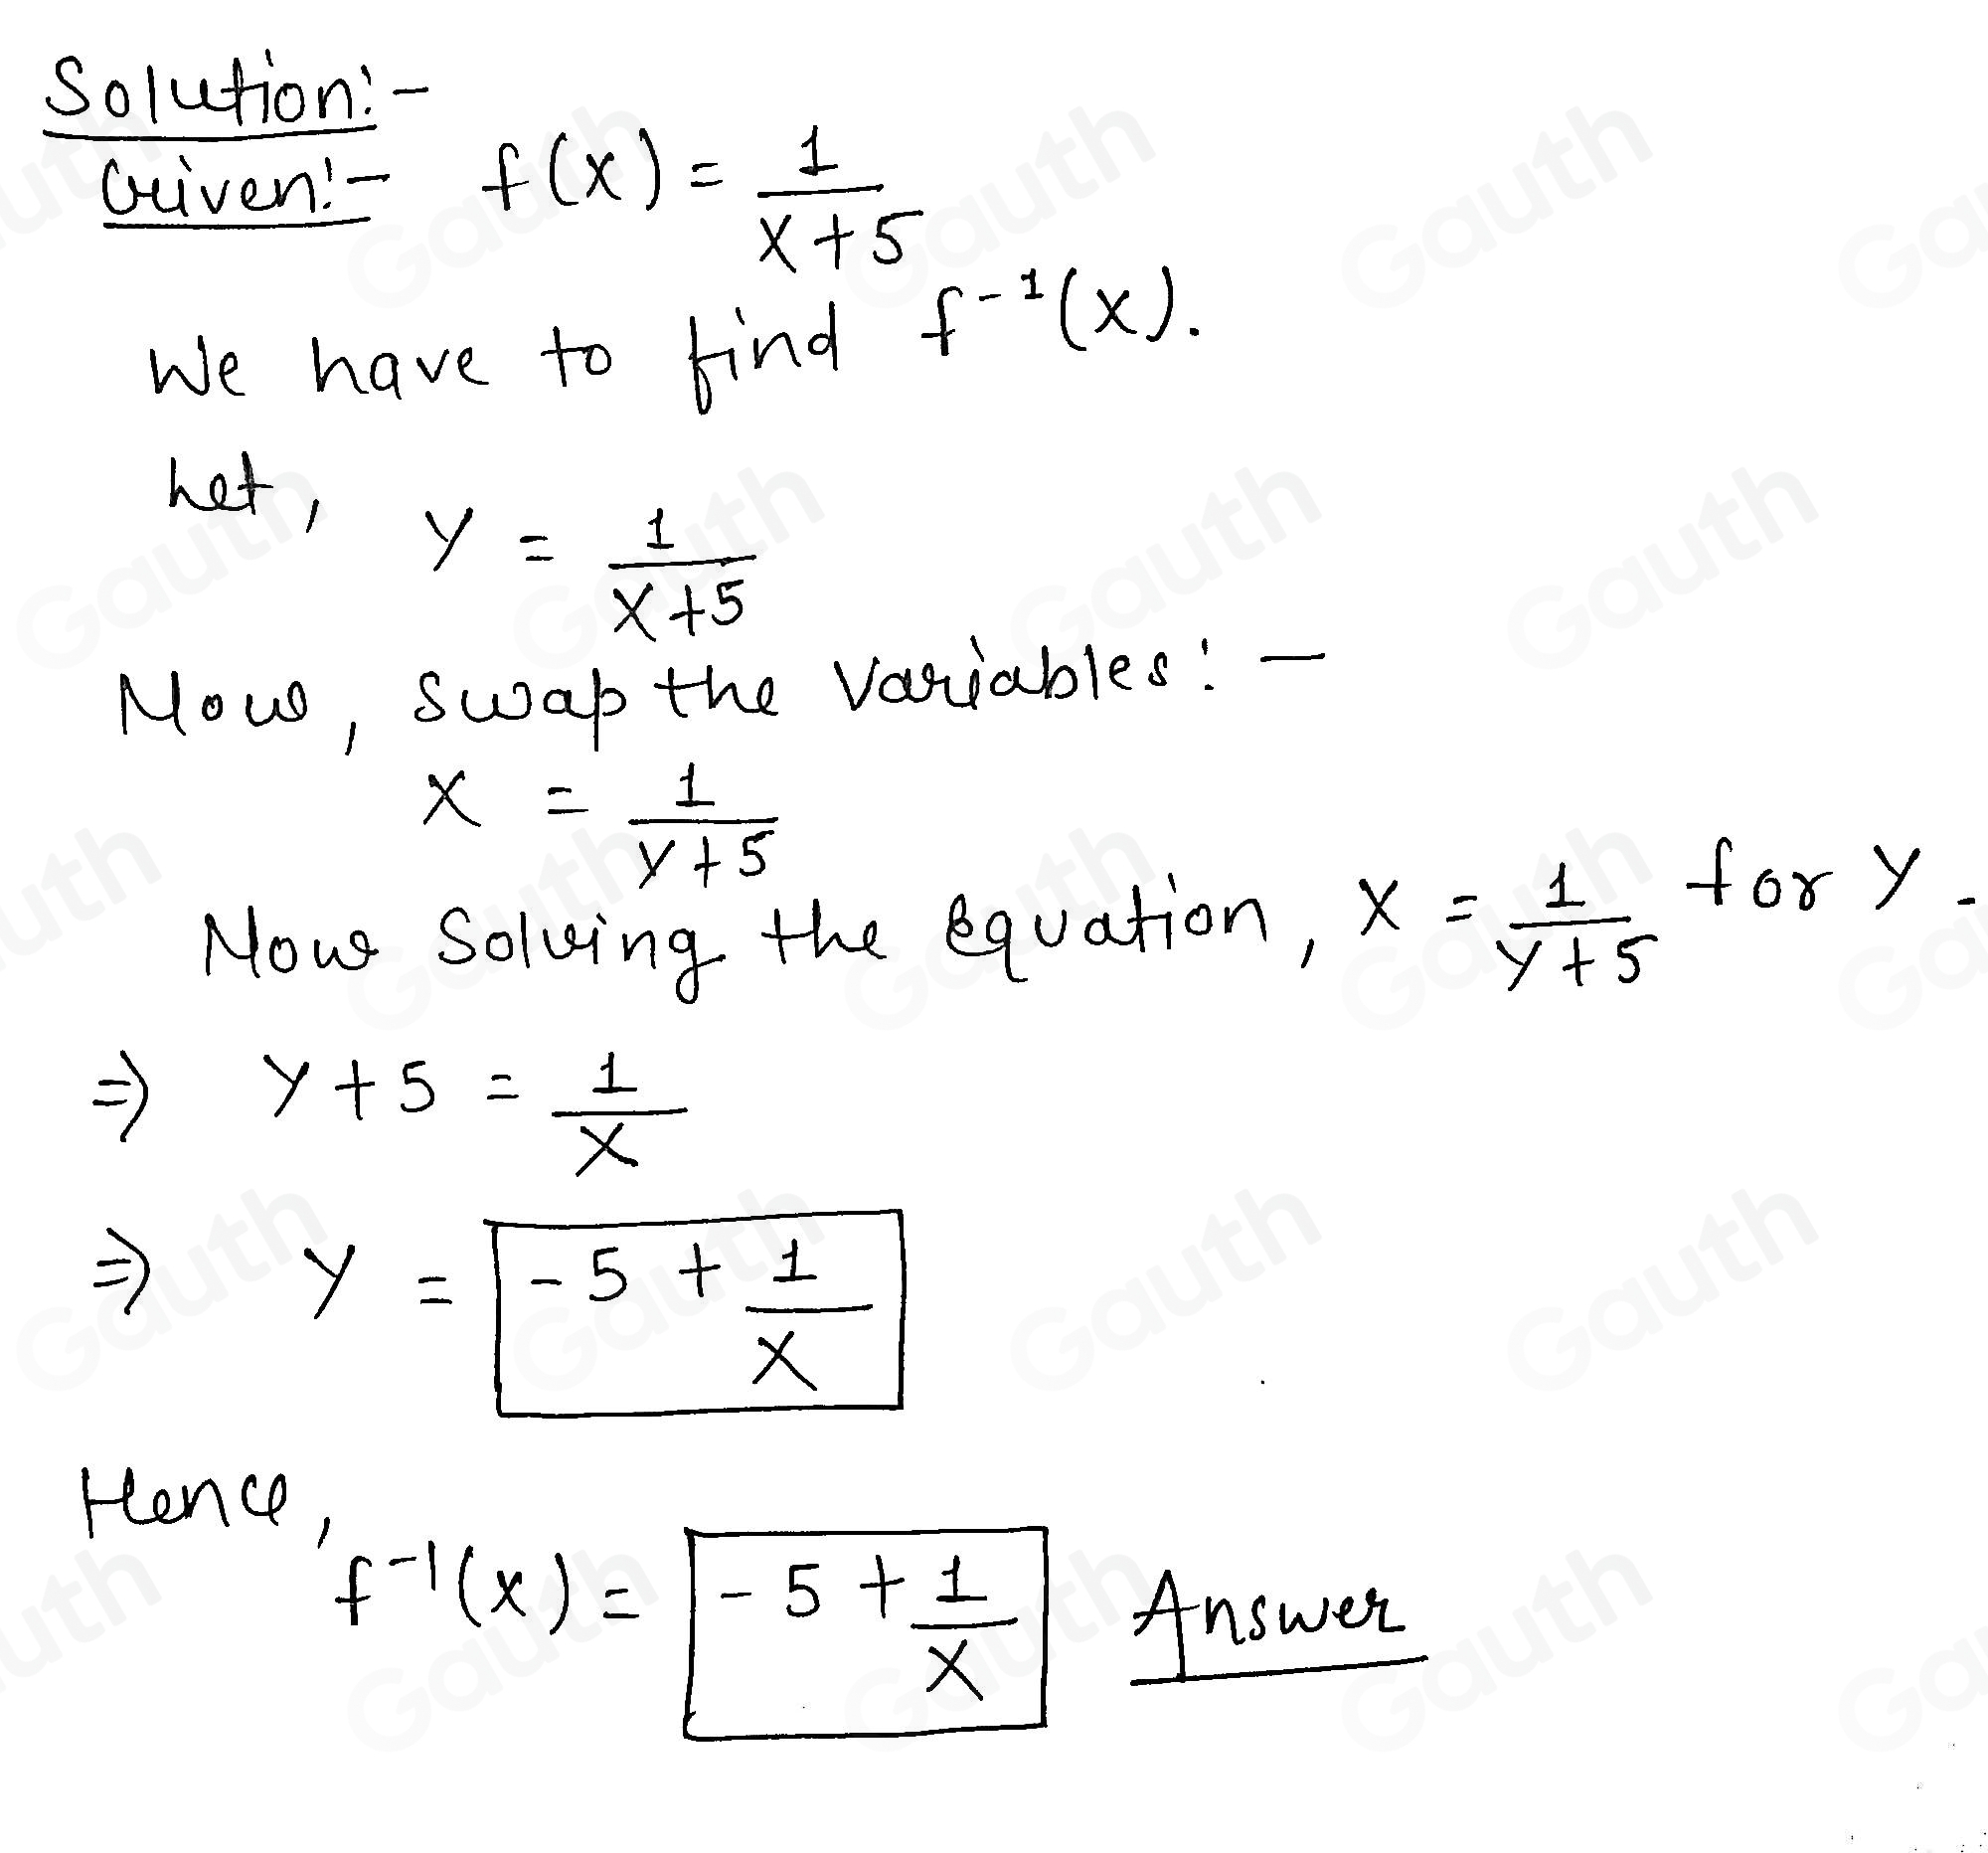 Solution:-
Given:- f(x) = 1/(x+5)
We have to find f⁻¹(x).
Let, y = 1/(x+5)
Now, swap the variables:-
x = 1/(y+5)
Now solving the equation, x = 1/(y+5) for y.
⇒ y+5 = 1/x
⇒ y = -5 + 1/x
Hence,
f⁻¹(x) = -5 + 1/x Answer
Gauth